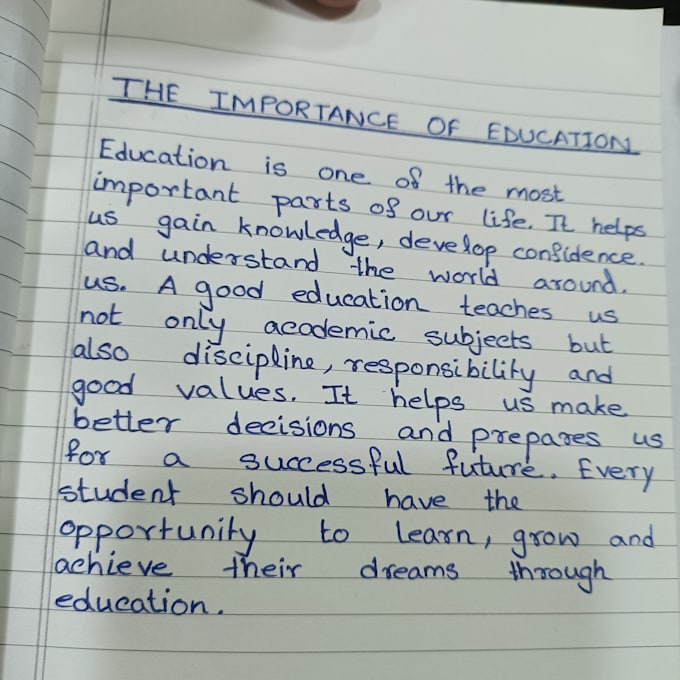 THE IMPORTANCE OF EDUCATION
Education is one of the most
important parts of our life. It helps
us gain knowledge, develop confidence.
and understand the world around.
us. A good education teaches us
not only academic subjects but
also discipline, responsibility and
good values. It helps us make
better decisions and prepares us
for a successful future. Every
student should have the
opportunity to learn, grow and
achieve their dreams through
education.